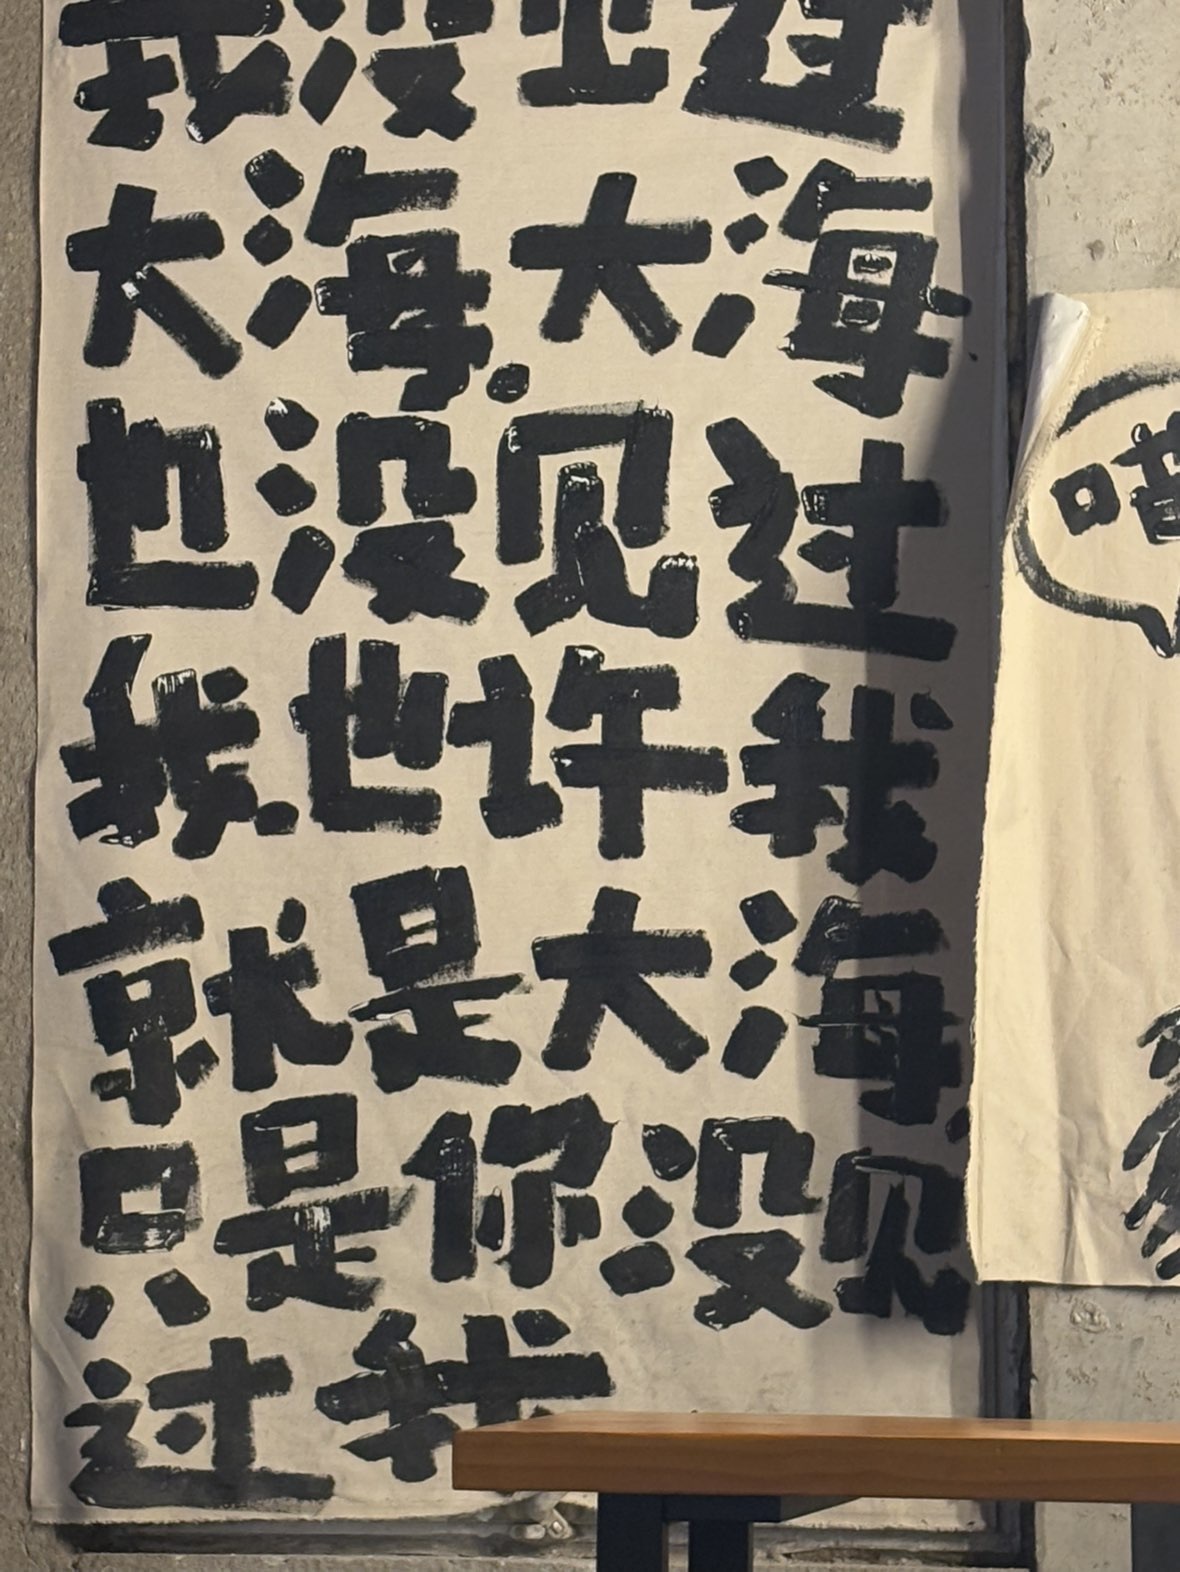 我没见过
大海.大海
也没见过
我.也许我
就是大海.
只是你没见
过我